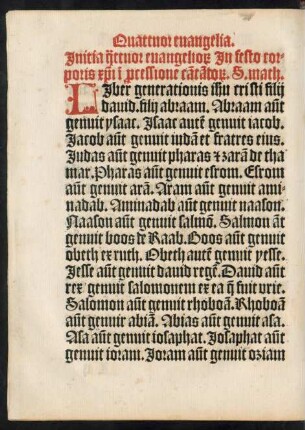 Quattuor euangelia.
Initia q̈ttuor euangelioꝝ In festo cor-
poris xp̄i ī ꝓcessione cātātoꝝ. S. math.
LIber generationis ihū cristi filij
dauid. filij abraam. Abraam aūt
genuit ysaac. Isaac autē genuit iacob.
Iacob aūt genuit iudā et fratres eius.
Iudas aūt genuit phares ⁊ zarā de tha
mar. Phares aūt genuit esrom. Esrom
aūt genuit arā. Aram aūt genuit ami-
nadab. Aminadab aūt genuit naason.
Naason aūt genuit salmō. Salmon āt
genuit boos de Raab. Boos aūt genuit
obeth ex ruth. Obeth autē genuit yesse.
Iesse aūt genuit dauid regē. Dauid aūt
rex genuit salomonem ex ea q̄ fuit vrie.
Salomon aūt genuit rhoboā. Rhoboā
aūt genuit abiā. Abias aūt genuit asa.
Asa aūt genuit iosaphat. Iosaphat aūt
genuit ioram. Ioram aūt genuit oziam